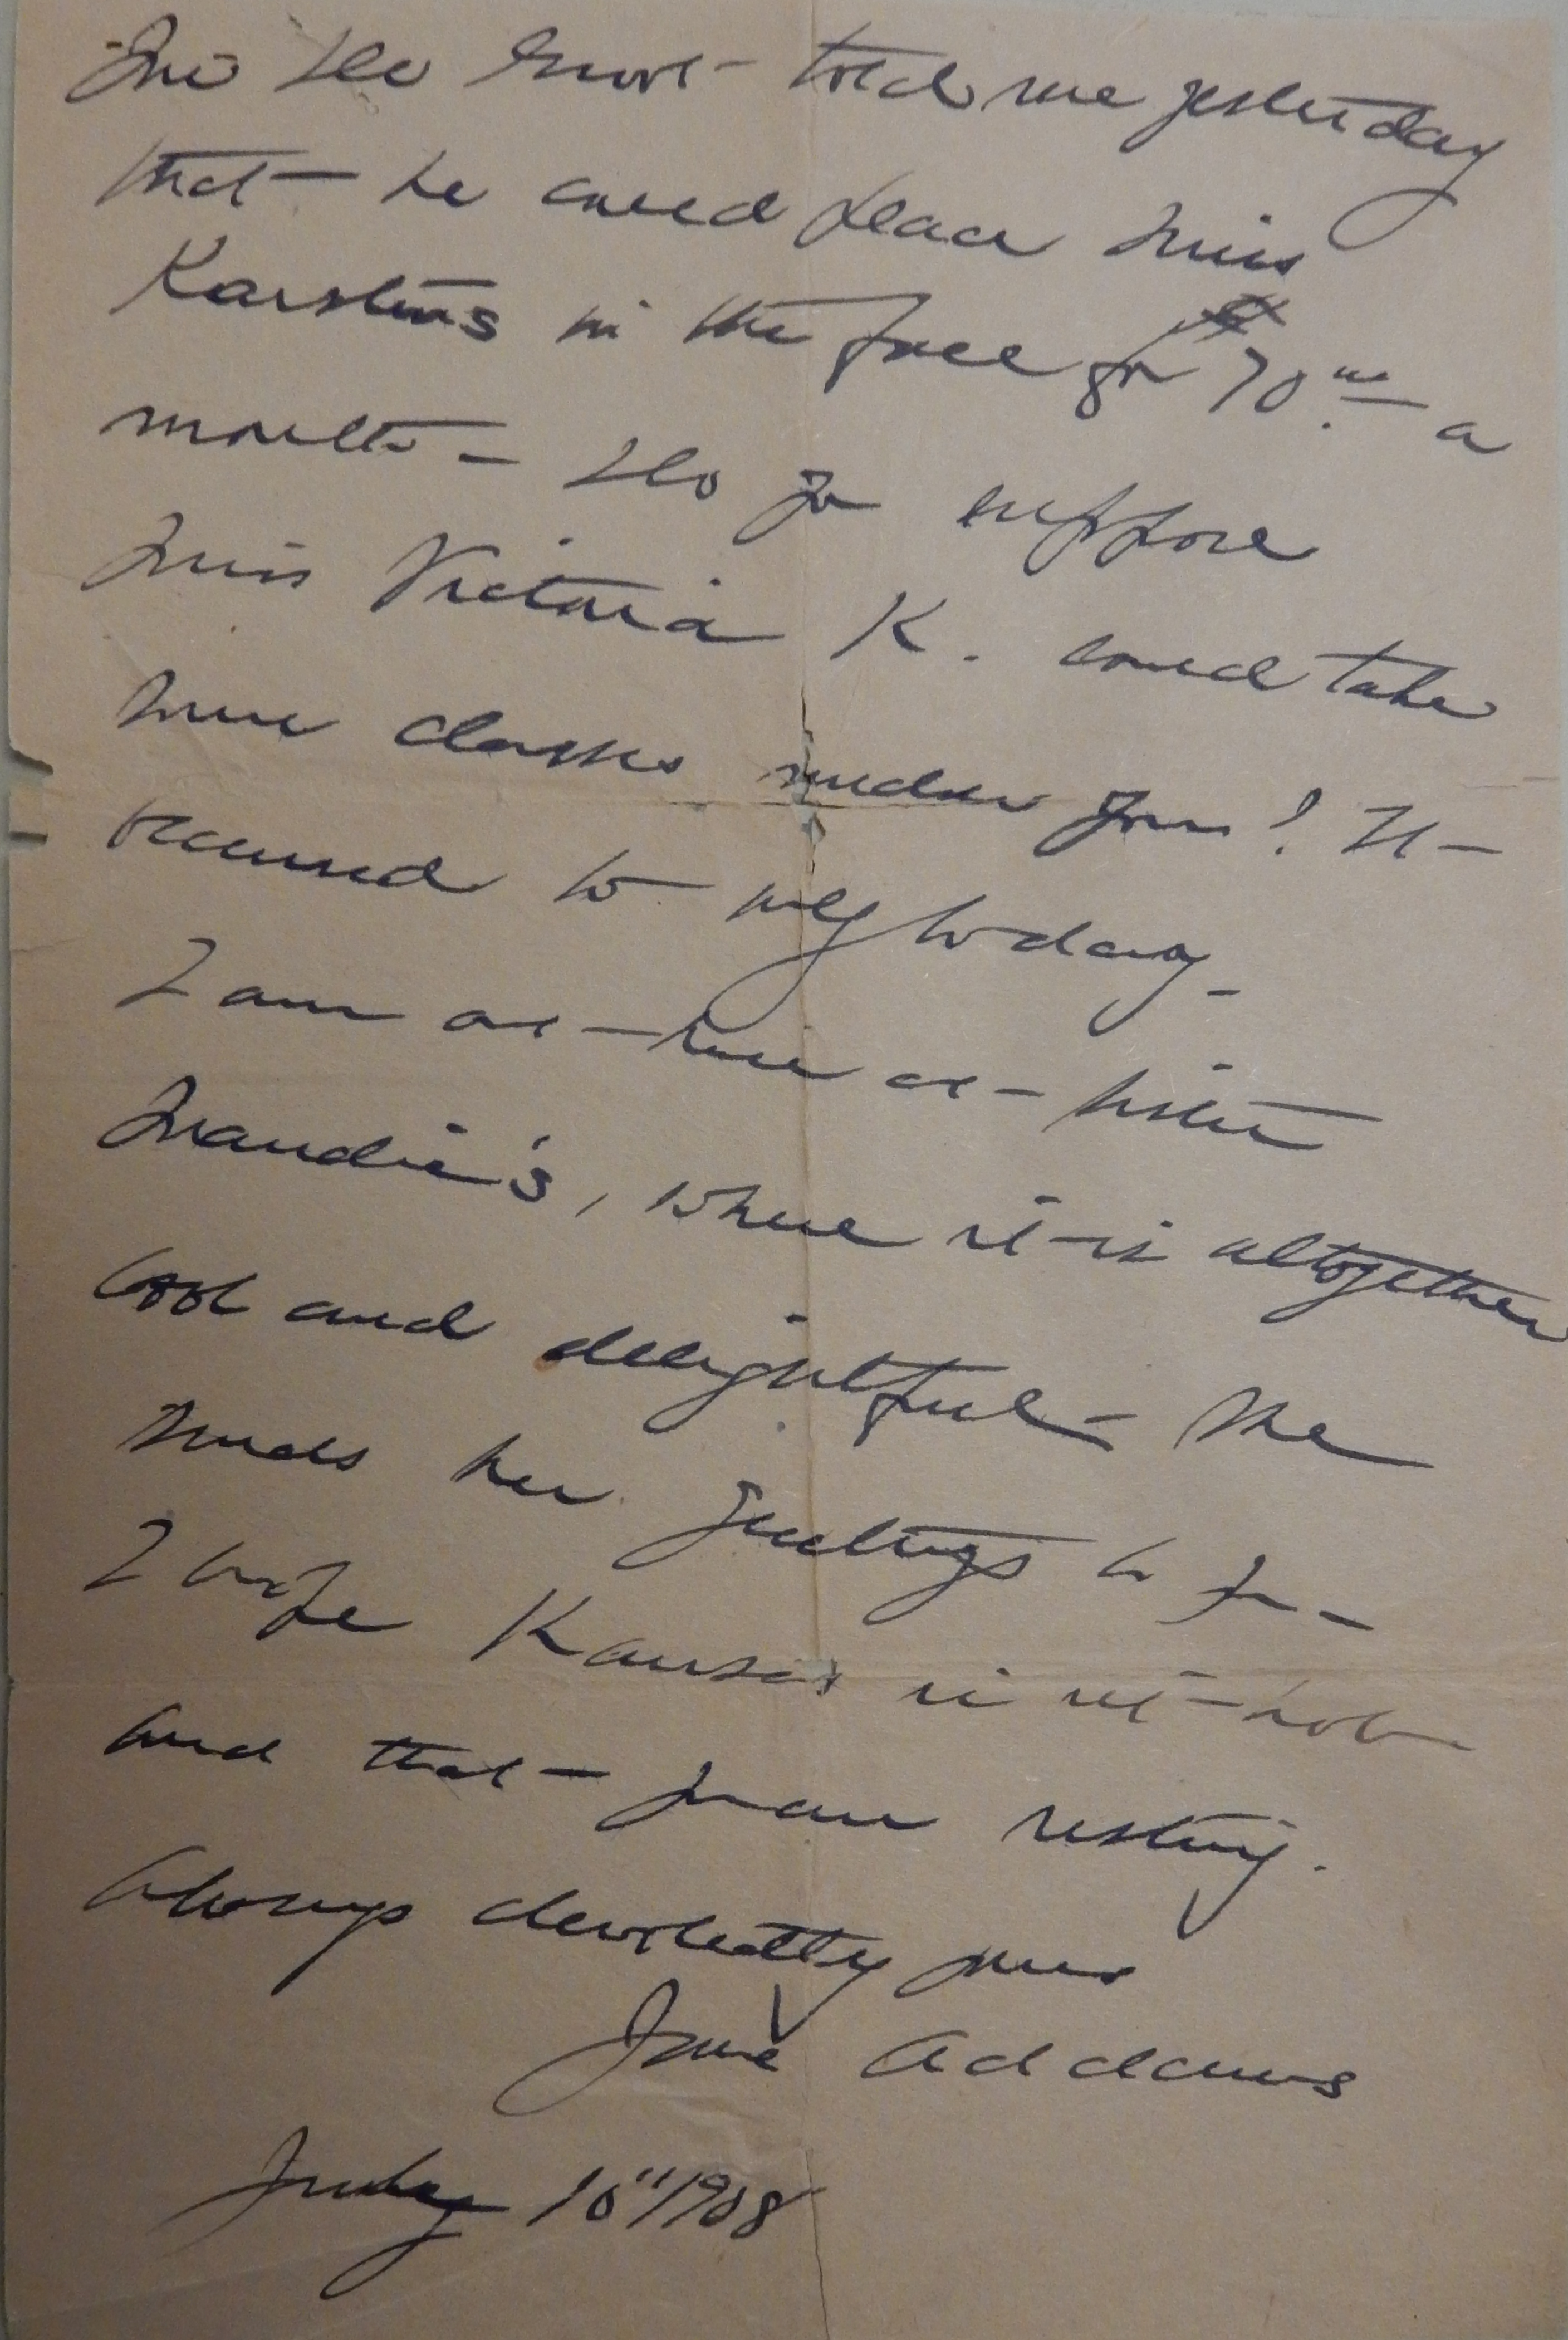 Mr De Groot told me yesterday
that he could place Miss
Karstens in the face for 70.00 a
month – Do you suppose
Miss Victoria K. could take
some classes under you? It
occurred to me today –
I am at home at sister
Maudie's, where it is altogether
cool and delightful – She
sends her greetings to you –
I hope Kansas is not hot
and that you are resting.
Always devotedly yours
Jane Addams
July 10" 1908